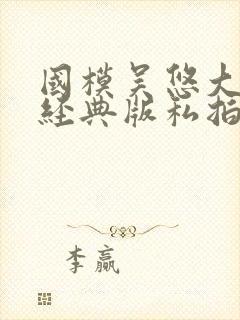 國模吴悠大
經典版私拍
李赢